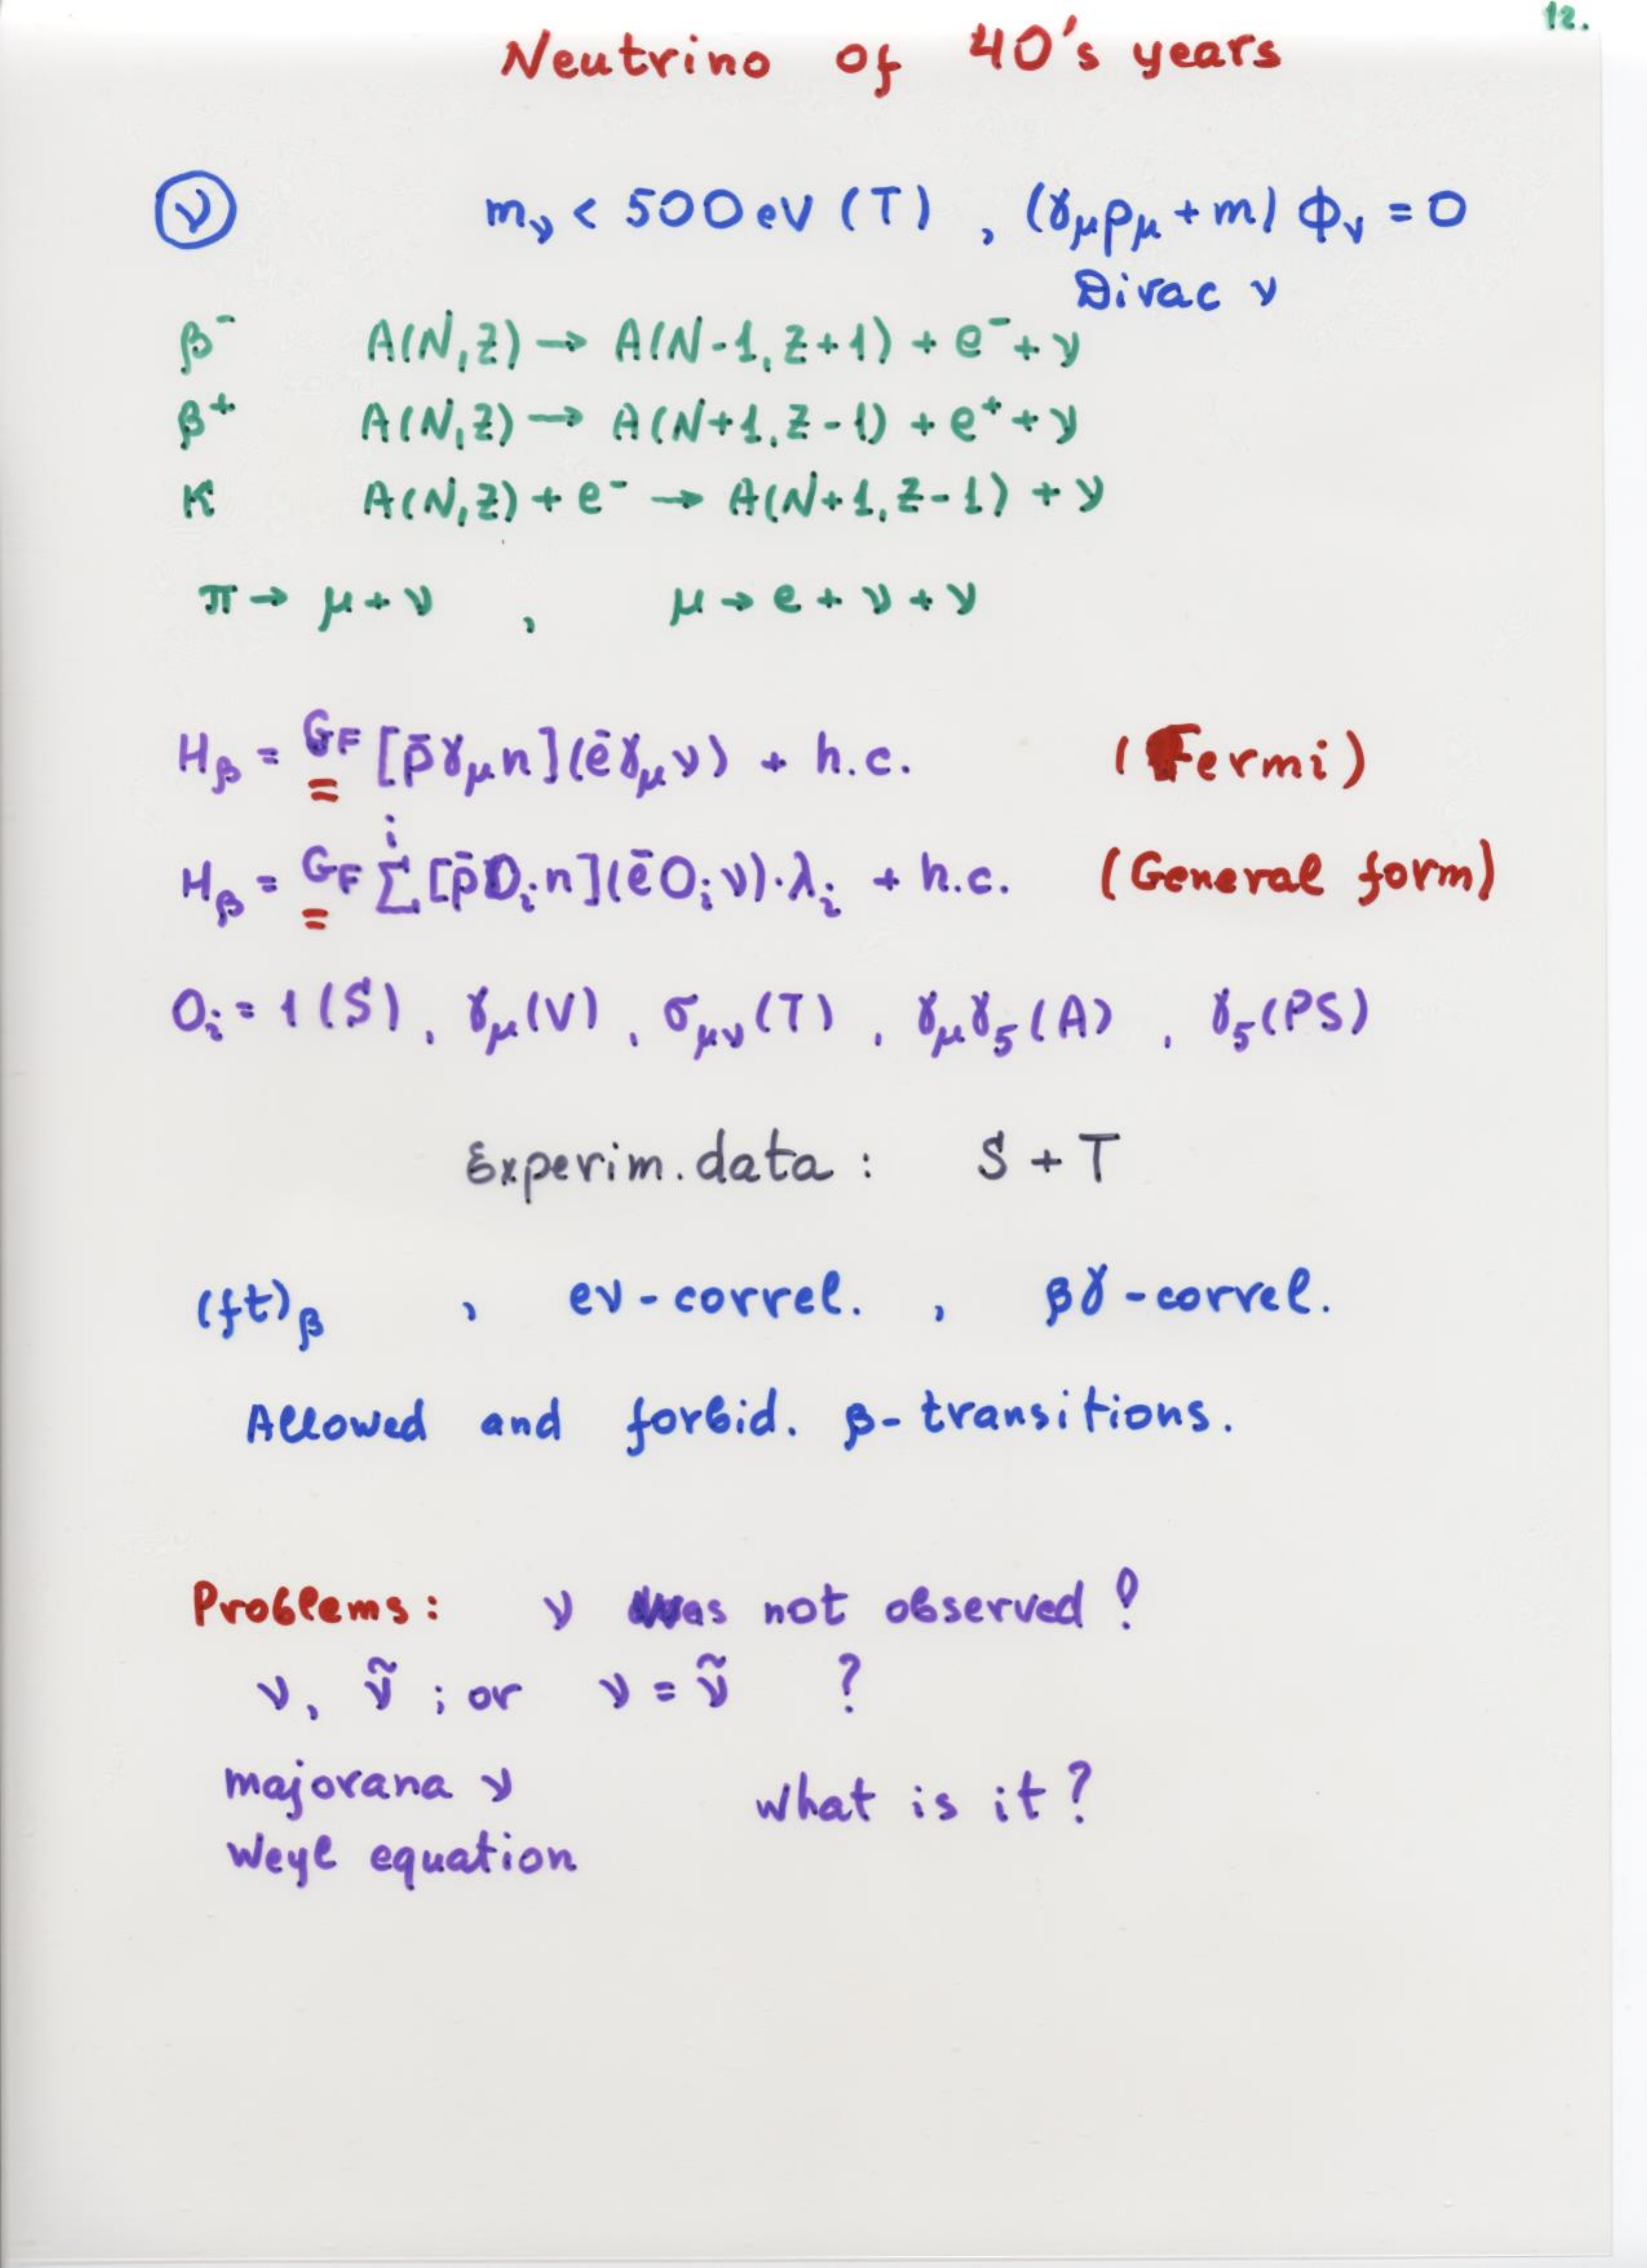 12.
Neutrino of 40's years
ν m_ν < 500 eV (T) , (γ_μ p_μ + m) ϕ_ν = 0
Dirac ν
β⁻ A(N,Z) → A(N-1, Z+1) + e⁻ + ν
β⁺ A(N,Z) → A(N+1, Z-1) + e⁺ + ν
K A(N,Z) + e⁻ → A(N+1, Z-1) + ν
π → μ + ν , μ → e + ν + ν
H_β = G_F [p̄ γ_μ n] (ē γ_μ ν) + h.c. (Fermi)
H_β = G_F Σ^i [p̄ O_i n] (ē O_i ν) · λ_i + h.c. (General form)
O_i = 1 (S) , γ_μ (V) , σ_μν (T) , γ_μ γ_5 (A) , γ_5 (PS)
Experim. data : S + T
(ft)_β , eν - correl. , βγ - correl.
Allowed and forbid. β - transitions.
Problems : ν was not observed !
ν, ν̃ ; or ν = ν̃ ?
majorana ν
what is it ?
Weyl equation